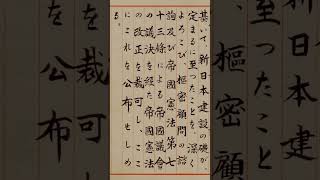 基いて、新日本建設の礎が、
定まるに至つたことを、深く
よろこび、樞密顧問の諮
詢及び帝國憲法第七
十三條による帝國議會
の議決を経た帝國憲法
の改正を裁可し、ここ
にこれを公布せしめ
る。